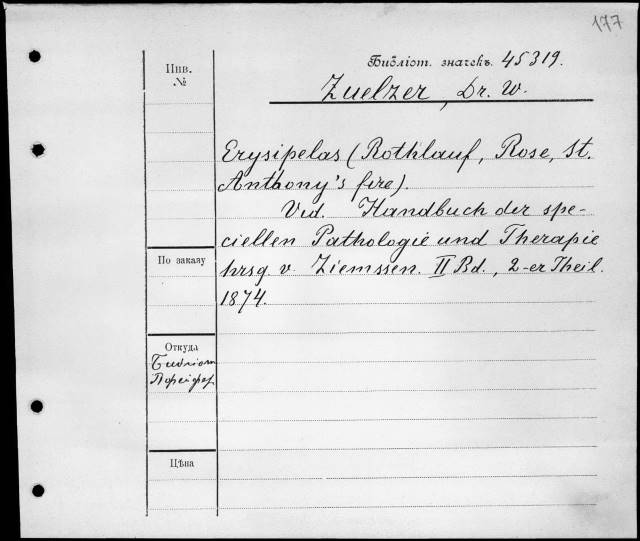 177
Инв. №
Библіот. значекъ 45319.
Zuelzer, Dr. W.
Erysipelas (Rothlauf, Rose, St.
Anthony's fire).
Vid. Handbuch der spe-
ciellen Pathologie und Therapie
hrsg. v. Ziemssen. II Bd., 2-er Theil.
1874.
По заказу
Откуда
Цѣна